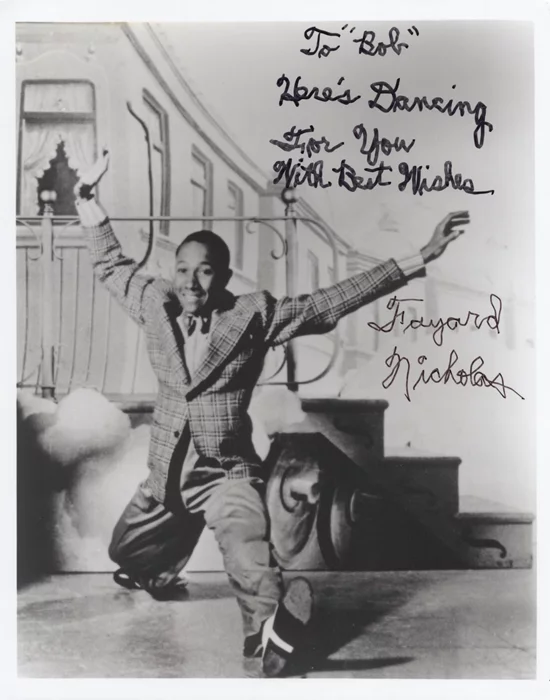 To "Bob"
Here's Dancing
For You
With Best Wishes
Fayard
Nicholas